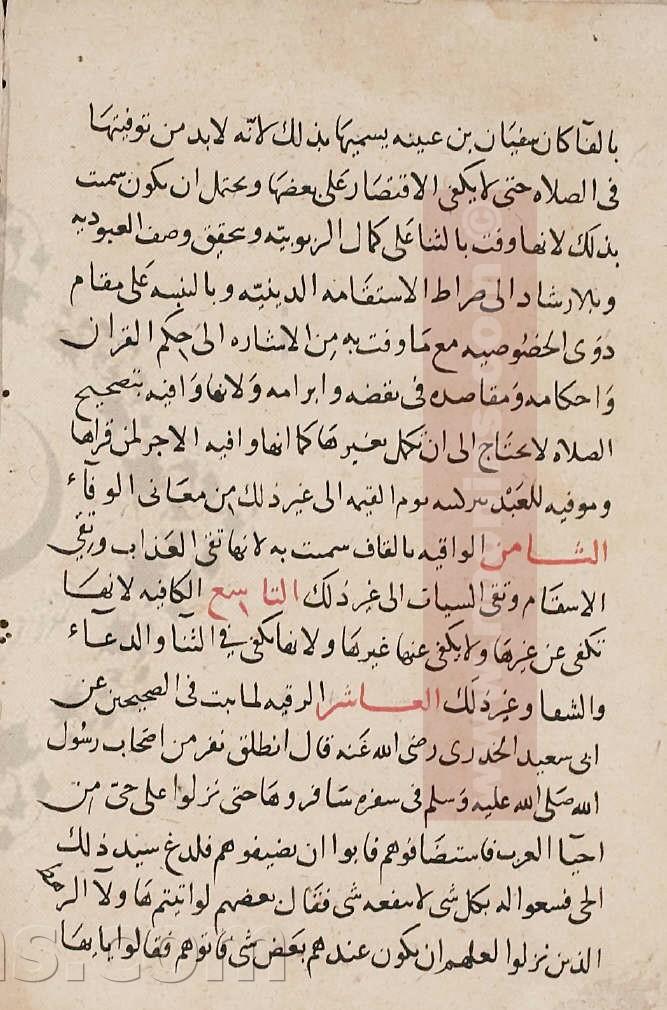 بالفآ كان سفيان بن عيينه يسميها بذلك لانه لا بد من توفيتها
فى الصلاه حتى لا يكفى الاقتصار على بعضها ويحتمل ان يكون سميت
بذلك لانها وفت بالثنا على كمال الربوبيه وبحقيق وصف العبوديه
وبالارشاد الى صراط الاستقامه الدينيه وبالنسبه على مقام
ذوى الخصوصيه مع ما وفت به من الاشاره الى حكم القران
واحكامه ومقاصده فى نقضه وابرامه ولانها وافيه بتصحيح
الصلاه لا يحتاج الى ان تكمل بغيرها كما انها وافيه الاجر لمن قراها
وموفيه للعبد يوم القيمه الى غير ذلك من معانى الوفآء
الثامن الواقيه بالقاف سميت به لانها تقى العذاب وتقي
الاسقام وتقى السيات الى غير ذلك التاسع الكافيه لانها
تكفى عن غيرها ولا يكفى عنها غيرها ولانها تكفى في الثنآ والدعآء
والشفا وغير ذلك العاشر الرقيه لما ثبت فى الصحيحين عن
ابى سعيد الخدرى رضى الله عنه قال انطلق نفر من اصحاب رسول
الله صلى الله عليه وسلم فى سفره سافروها حتى نزلوا على حىّ من
احيآ العرب فاستضافوهم فابوا ان يضيفوهم فلدغ سيد ذلك
الحى فسعوا له بكل شى لا ينفعه شى فقال بعضهم لو اتيتم هاولآ الرهط
الذين نزلوا لعلهم ان يكون عندهم بعض شى فاتوهم فقالوا يايها